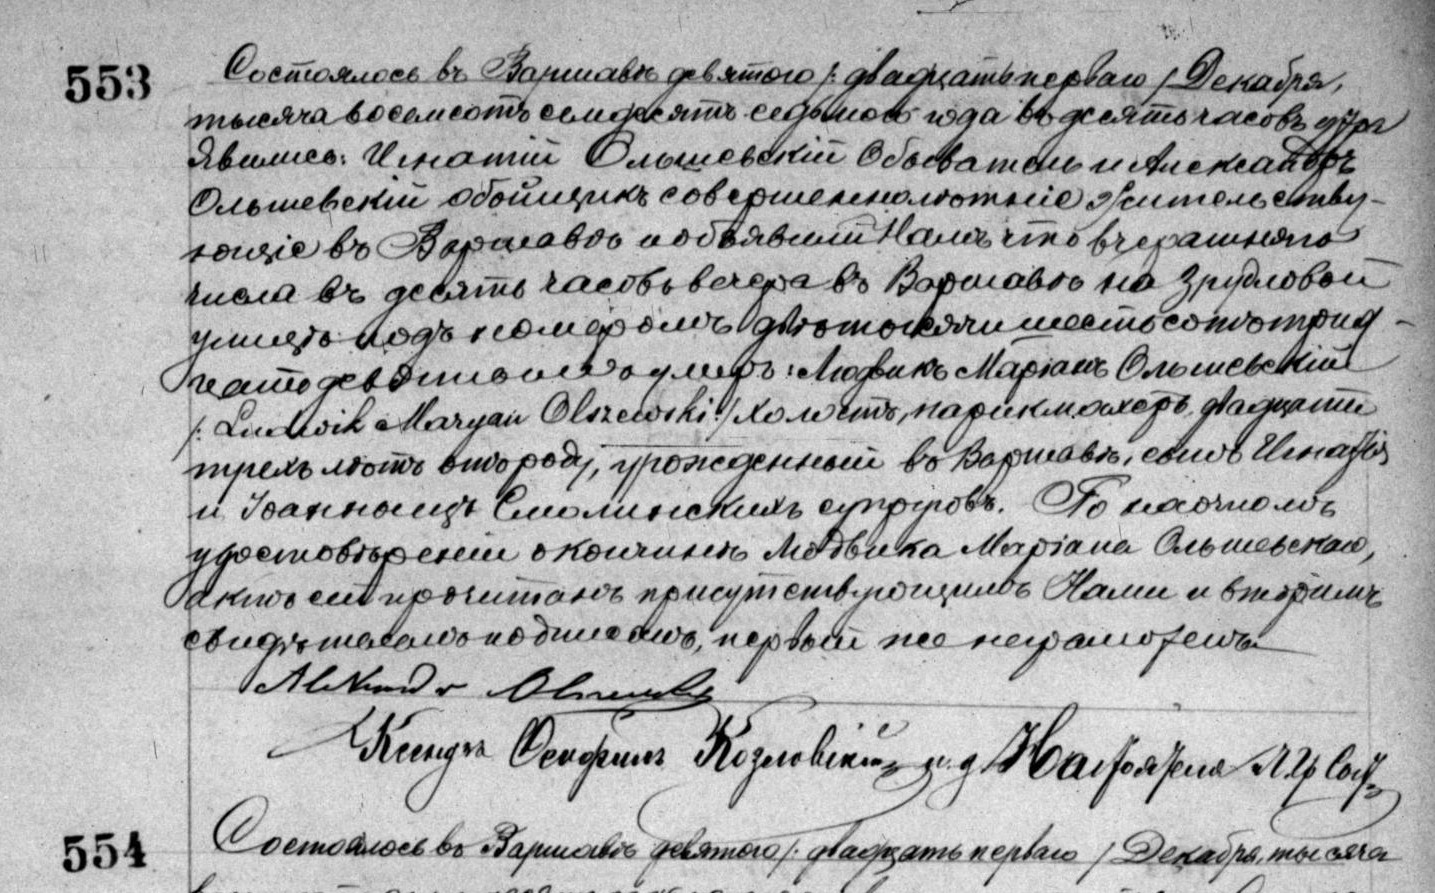 553 Состоялось въ Варшавѣ девятого /: двадцать перваго / Декабря,
тысяча восемсотъ семдесятъ седьмого года въ десять часовъ утра
Явились: Игнатій Ольшевскій Обыватель и Александръ
Ольшевскій обойщикъ совершеннолѣтніе жительству-
ющіе въ Варшавѣ и объявили Намъ что вчерашняго
числа въ десять часовъ вечера въ Варшавѣ на Зрудловой
улицѣ подъ номеромъ двѣ тысячи шестьсотъ трид-
цать девятымъ умеръ: Людвикъ Маріанъ Ольшевскій
/: Ludwik Maryan Olszewski :/ холостъ, парикмахеръ, двадцати
трехъ лѣтъ отъ роду, урожденный въ Варшавѣ, сынъ Игнатія
и Іоанны изъ Смолинскихъ супруговъ. По наочномъ
удостовѣреніи о кончинѣ Людвика Маріана Ольшевскаго,
актъ сей прочитанъ присутствующимъ Нами и вторымъ
свидѣтелемъ подписанъ, первый же неграмотенъ
Alexandr Olszewski
Ксендзъ Ѳеофилъ Козловскій и. д. Настоятеля
554 Состоялось въ Варшавѣ девятого /: двадцать перваго / Декабря, тысяча